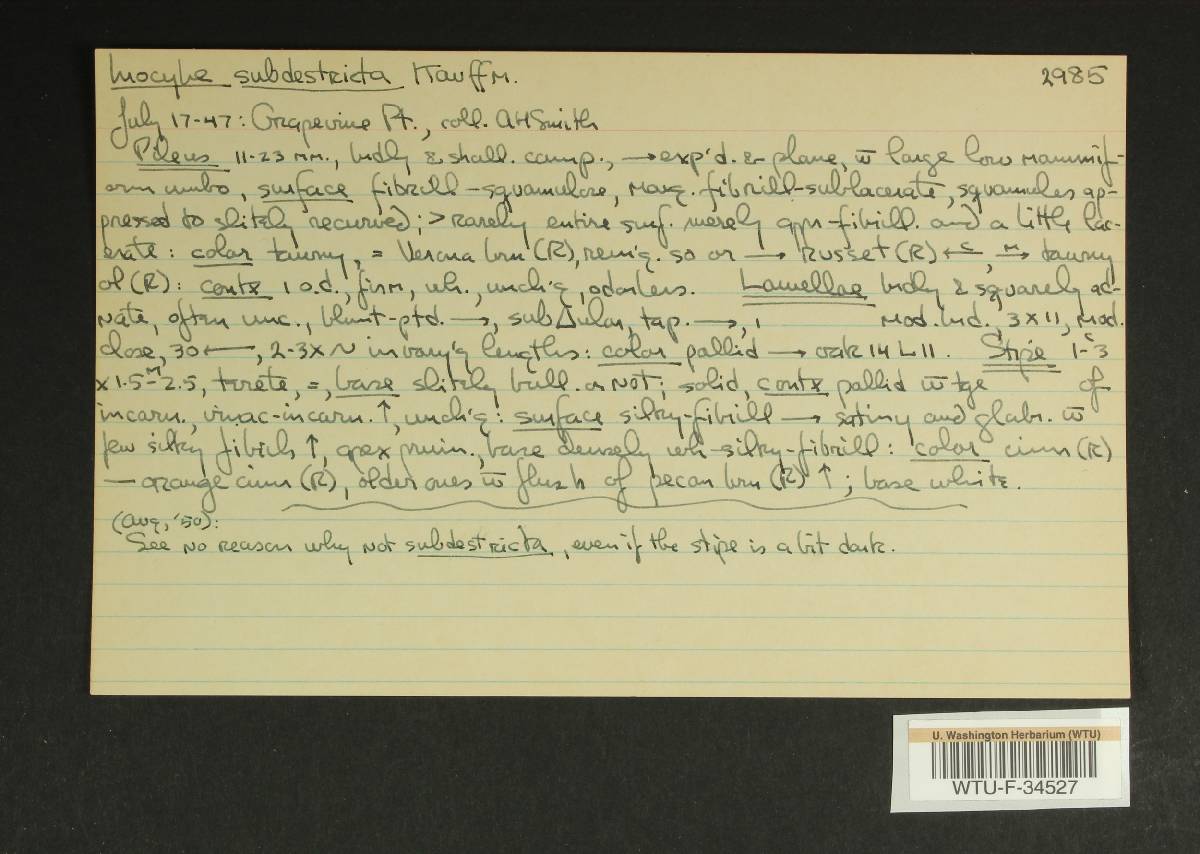 Inocybe subdestricta Kauffm. 2985
July 17-47: Grapevine Pt., coll. AHSmith
Pileus 11-23 mm., brdly & shall. camp., → exp'd. & plane, w̄ large low mammif-
orm umbo, surface fibrill-squamulose, marg. fibrill-sublacerate, squamules ap-
pressed to slitely recurved; > rarely entire surf. merely appr-fibrill. and a little lac-
erate: color tawny, = Verona brn (R), rem'g. so or → Russet (R) ←C, M→ tawny
ol (R): contx 1 o.d., firm, wh., unch'g, odorless. Lamellae brdly & squarely ad-
nate, often unc., blunt-ptd. →, sub△ular, tap. →, 1 mod. brd., 3 x 11, mod.
close, 30 ←, 2-3x N in vary'g lengths: color pallid → oak 14 L 11. Stipe 1-3 C
x 1.5-2.5 M, terete, =, base slitely bulb. or not; solid, contx pallid w̄ tge of
incarn., vinac-incarn. ↑, unch'g: surface silky-fibrill → satiny and glabr. w̄
few silky fibrils ↑, apex pruin., base densely wh-silky-fibrill: color cinn (R)
— orange cinn (R), older ones w̄ flush of pecan brn (R) ↑; base white.
(Aug, '50):
See no reason why not subdestricta, even if the stipe is a bit dark.
U. Washington Herbarium (WTU)
WTU-F-34527